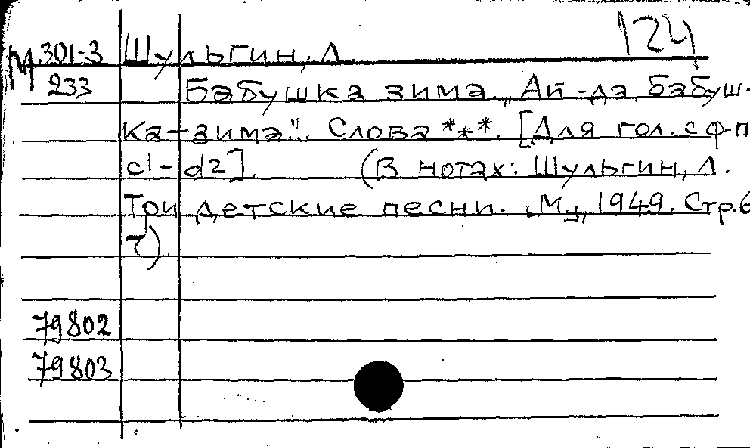 124
М 301-3 Шульгин, Л.
233 Бабушка зима. „Ай-да бабуш-
ка-зима". Слова ***. [Для гол. с ф-п
c1-d2]. (В нотах: Шульгин, Л.
Три детские песни. М., 1949. Стр. 6
7)
79802
79803